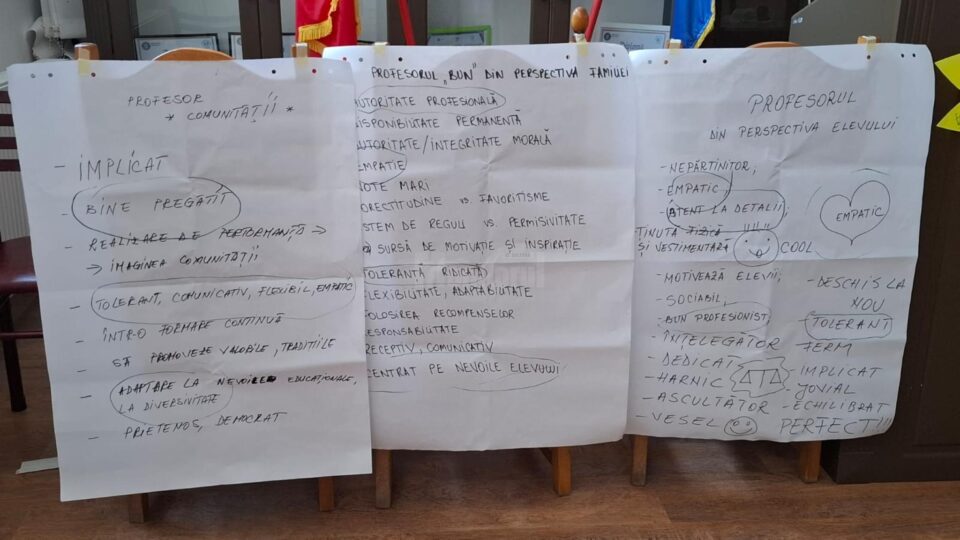 PROFESOR
* COMUNITĂȚII *
- IMPLICAT
- BINE PREGĂTIT
- REALIZARE DE PERFORMANȚĂ →
→ IMAGINEA COMUNITĂȚII
- TOLERANT, COMUNICATIV, FLEXIBIL, EMPATIC
- ÎNTR-O FORMARE CONTINUĂ
- SĂ PROMOVEZE VALORILE, TRADIȚIILE
- ADAPTARE LA NEVOILE EDUCAȚIONALE,
LA DIVERSIVITATE
- PRIETENOS, DEMOCRAT
PROFESORUL „BUN" DIN PERSPECTIVA FAMILIEI
AUTORITATE PROFESIONALĂ
DISPONIBILITATE PERMANENTĂ
AUTORITATE/INTEGRITATE MORALĂ
EMPATIE
NOTE MARI
CORECTITUDINE vs. FAVORITISME
SISTEM DE REGULI vs. PERMISIVITATE
O SURSĂ DE MOTIVAȚIE ȘI INSPIRAȚIE
TOLERANTĂ RIDICATĂ
FLEXIBILITATE, ADAPTABILITATE
FOLOSIREA RECOMPENSELOR
RESPONSABILITATE
RECEPTIV, COMUNICATIV
CENTRAT PE NEVOILE ELEVULUI
PROFESORUL
DIN PERSPECTIVA ELEVULUI
- NEPĂRTINITOR,
- EMPATIC,
- ATENT LA DETALII,
ȚINUTĂ FIZICĂ
ȘI VESTIMENTARĂ
COOL
- MOTIVEAZĂ ELEVII;
- SOCIABIL,
- BUN PROFESIONIST
- ÎNȚELEGĂTOR
- DEDICAT
- HARNIC
- ASCULTĂTOR
- VESEL
EMPATIC
- DESCHIS LA
NOU
TOLERANT
FERM
- IMPLICAT
- JOVIAL
- ECHILIBRAT
PERFECT!!!